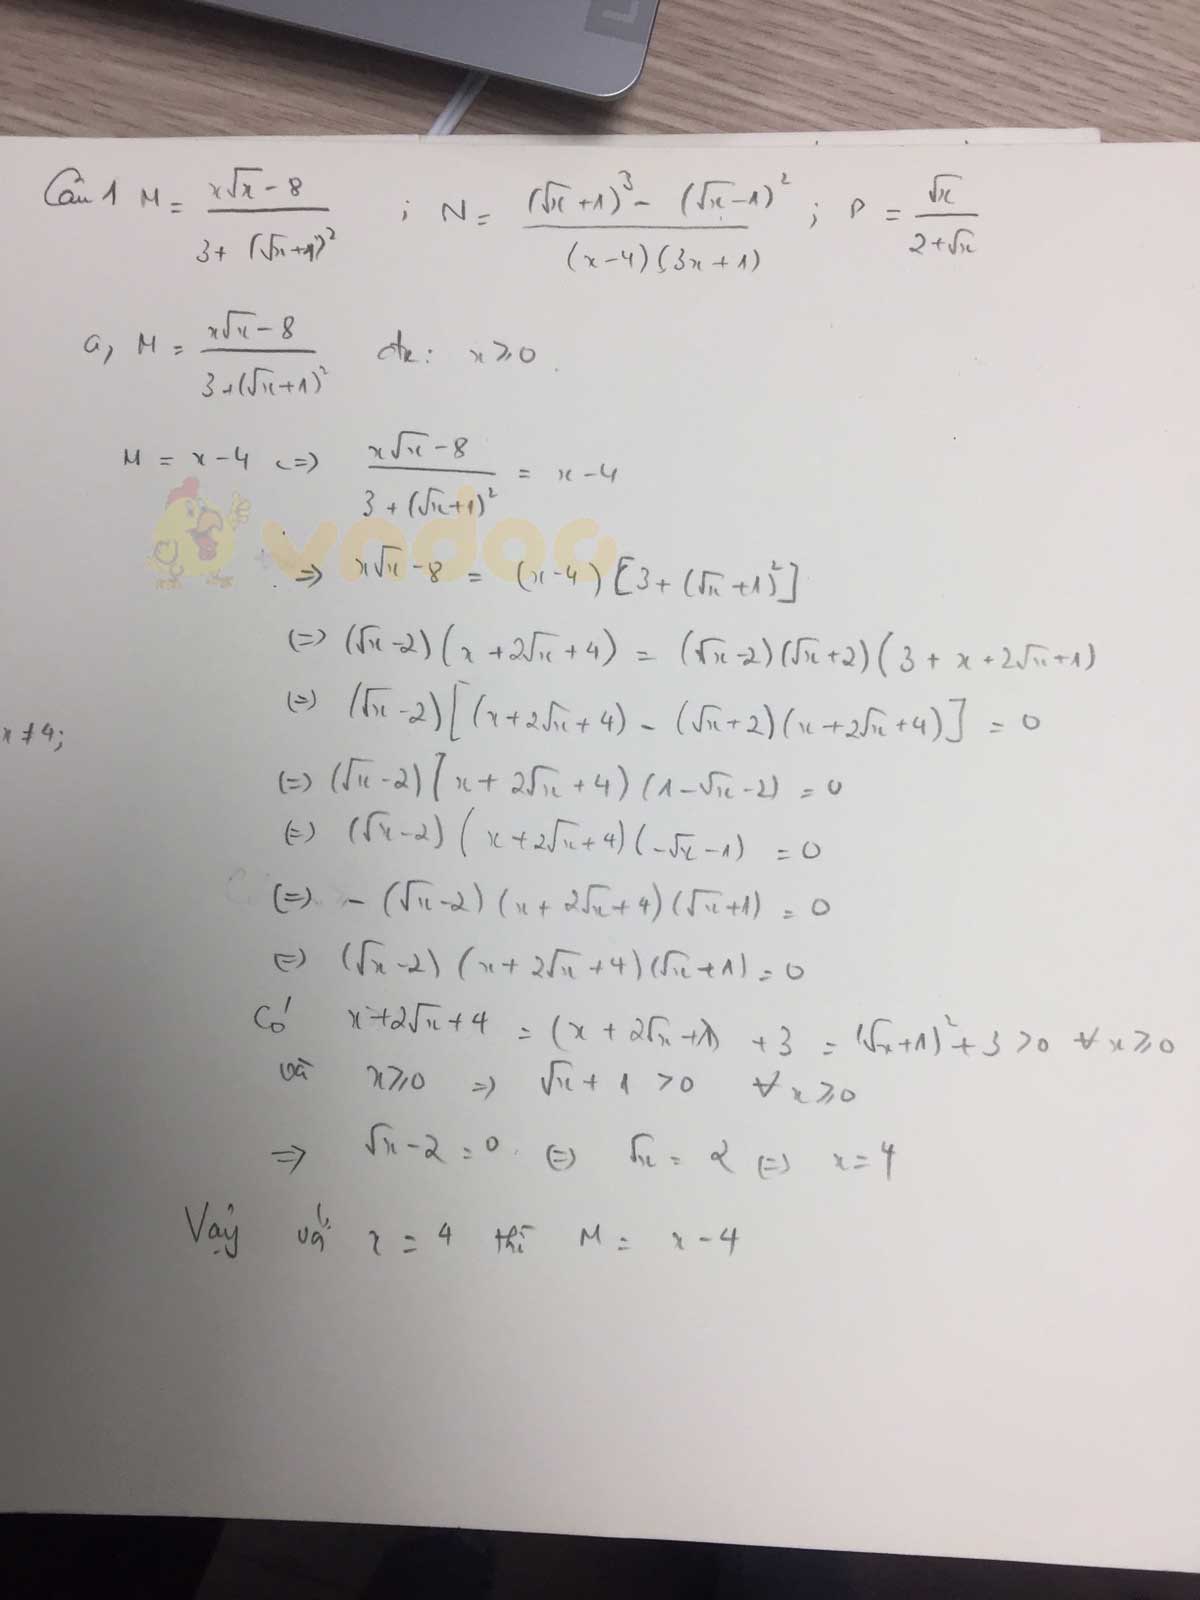 Câu 1 M = (x√x - 8)/(3 + (√x+1)²) ; N = ((√x+1)³ - (√x-1)²)/((x-4)(3x+1)) ; P = √x/(2+√x)
a, M = (x√x - 8)/(3+(√x+1)²) đk: x ≥ 0.
M = x-4 <=> (x√x - 8)/(3+(√x+1)²) = x-4
vndoc
=> x√x - 8 = (x-4)[3+(√x+1)²]
(=) (√x-2)(x+2√x+4) = (√x-2)(√x+2)(3+x+2√x+1)
(=) (√x-2)[(x+2√x+4) - (√x+2)(x+2√x+4)] = 0
x ≠ 4;
(=) (√x-2)[x+2√x+4)(1-√x-2) = 0
(=) (√x-2)(x+2√x+4)(-√x-1) = 0
(=) -(√x-2)(x+2√x+4)(√x+1) = 0
(=) (√x-2)(x+2√x+4)(√x+1) = 0
Có x+2√x+4 = (x+2√x+1) + 3 = (√x+1)²+3 > 0 ∀x ≥ 0
và x ≥ 0 => √x+1 > 0 ∀x ≥ 0
=> √x-2 = 0 (=) √x = 2 (=) x = 4
Vậy với x = 4 thì M = x-4